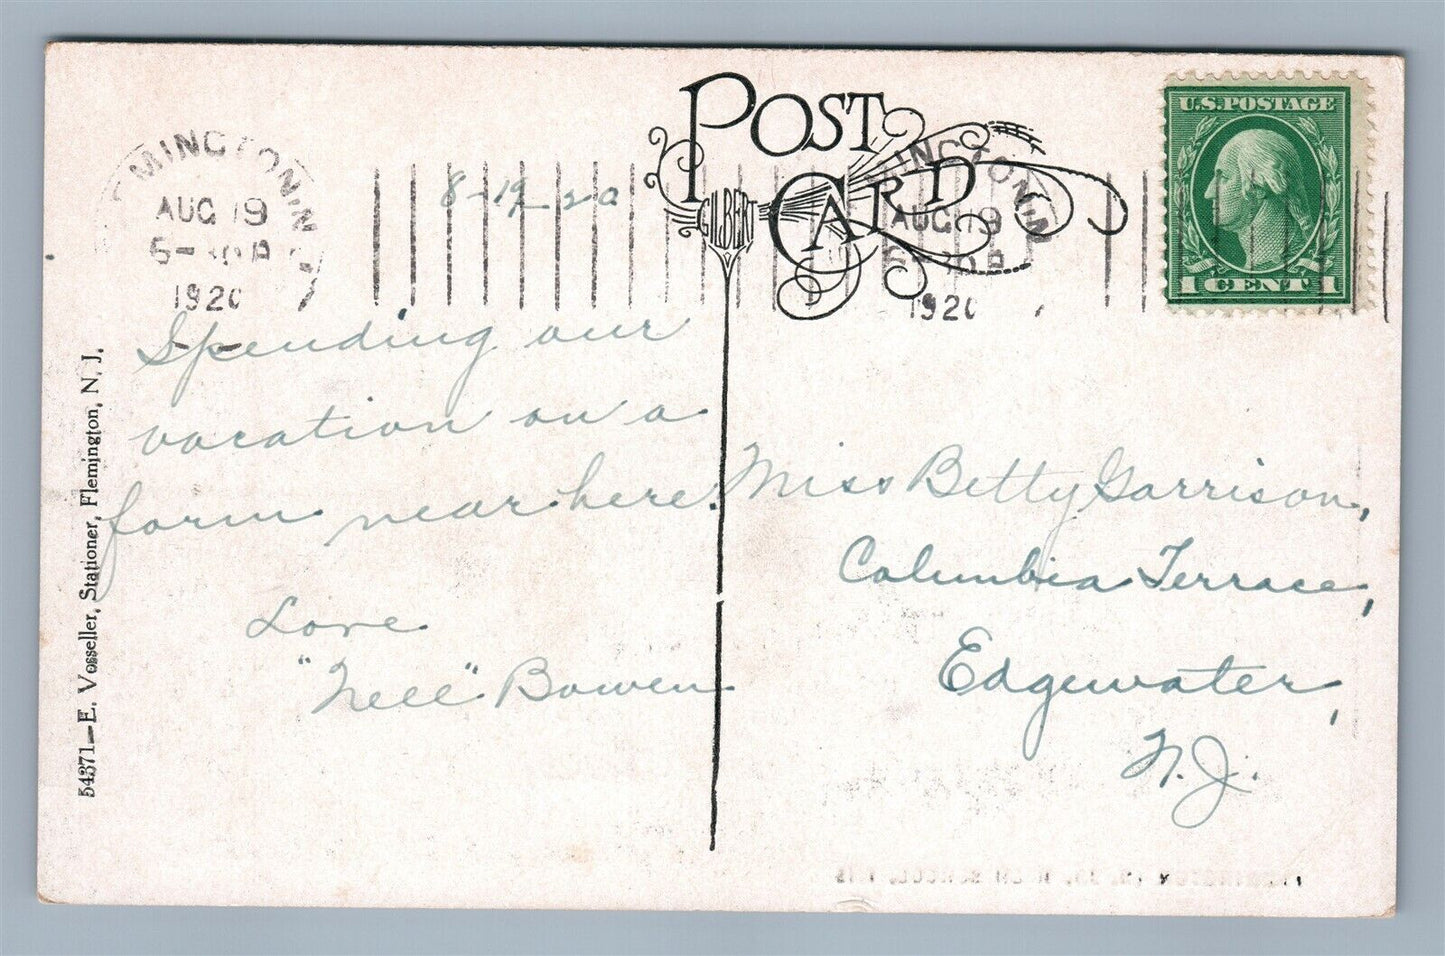 POST
CARD
GILBERT
U.S.POSTAGE
1 CENT 1
MINGTON, N.
AUG 19
1920
MINGTON, N
AUG 19
1920
8-19-20
Spending our
vacation on a
farm near here.
Love
"Nell" Bowen
Miss Betty Garrison,
Columbia Terrace,
Edgewater,
N.J.
54371—E. Vosseller, Stationer, Flemington, N. J.